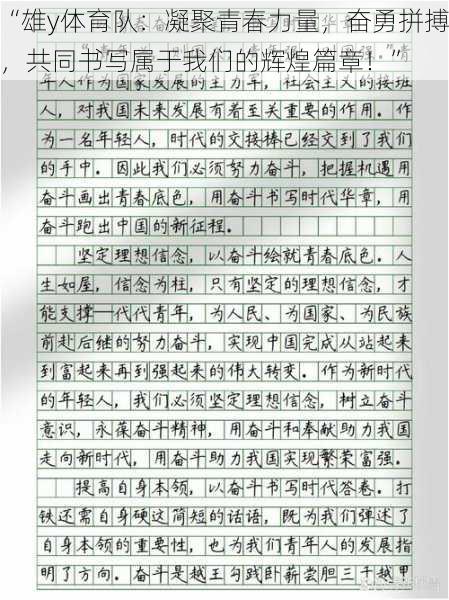 “雄y体育队：凝聚青春力量，奋勇拼搏
，共同书写属于我们的辉煌篇章！”
年人作为国家发展的主力军，社会主义的接班
人，对我国未来发展有着至关重要的作用。作
为一名年轻人，时代的交接棒已经交到了我们
的手中。因此我们必须努力奋斗，把握机遇用
奋斗画出青春底色，用奋斗书写时代华章，用
奋斗跑出中国的新征程。
坚定理想信念，以奋斗绘就青春底色。人
生如屋，信念为柱，只有坚定的理想信念，才
能支撑一代代青年，为人民、为国家、为民族
前赴后继的努力奋斗，实现中国完成从站起来
到富起来再到强起来的伟大转变。作为新时代
的年轻人，我们必须坚定理想信念，树立奋斗
意识，永葆奋斗精神，用奋斗和奉献助力我国
走向新时代，用奋斗助力我国实现繁荣富强。
提高自身本领，以奋斗书写时代答卷。打
铁还需自身硬这简短的话语，既为我们弹述了
自身本领的重要性，也为我们青年人的发展指
明了方向。奋斗是越王勾践卧薪尝胆三千越甲